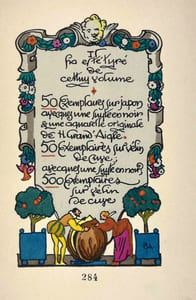 Il
ha été tyré
de
cettuy volume
50 Exemplaires sur japon
avecques une suyte en noir
& une aquarelle originale
de H. Grand'Aigle
50 Exemplaires sur vélin
de cuve,
avecques une suyte en noir,
500 Exemplaires
sur vélin
de cuve
284